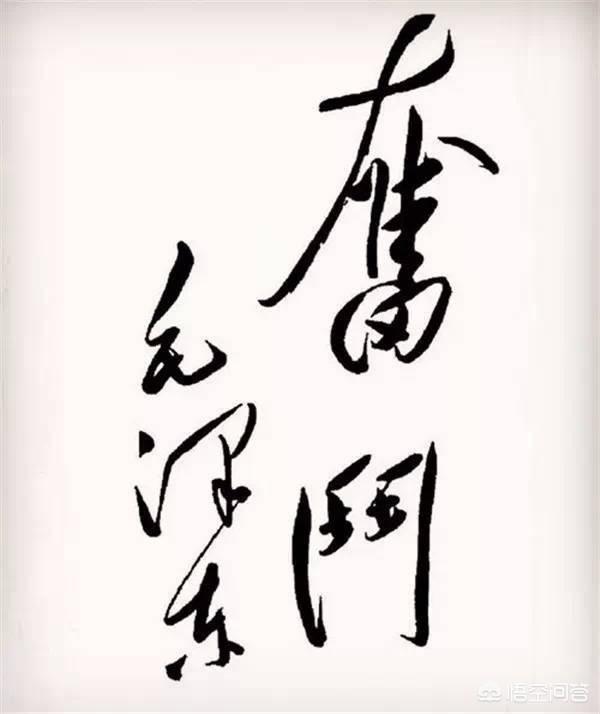 奮鬥
毛泽东
悟空问答